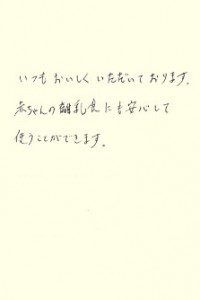 いつもおいしくいただいております。
赤ちゃんの離乳食にも安心して
使うことができます。